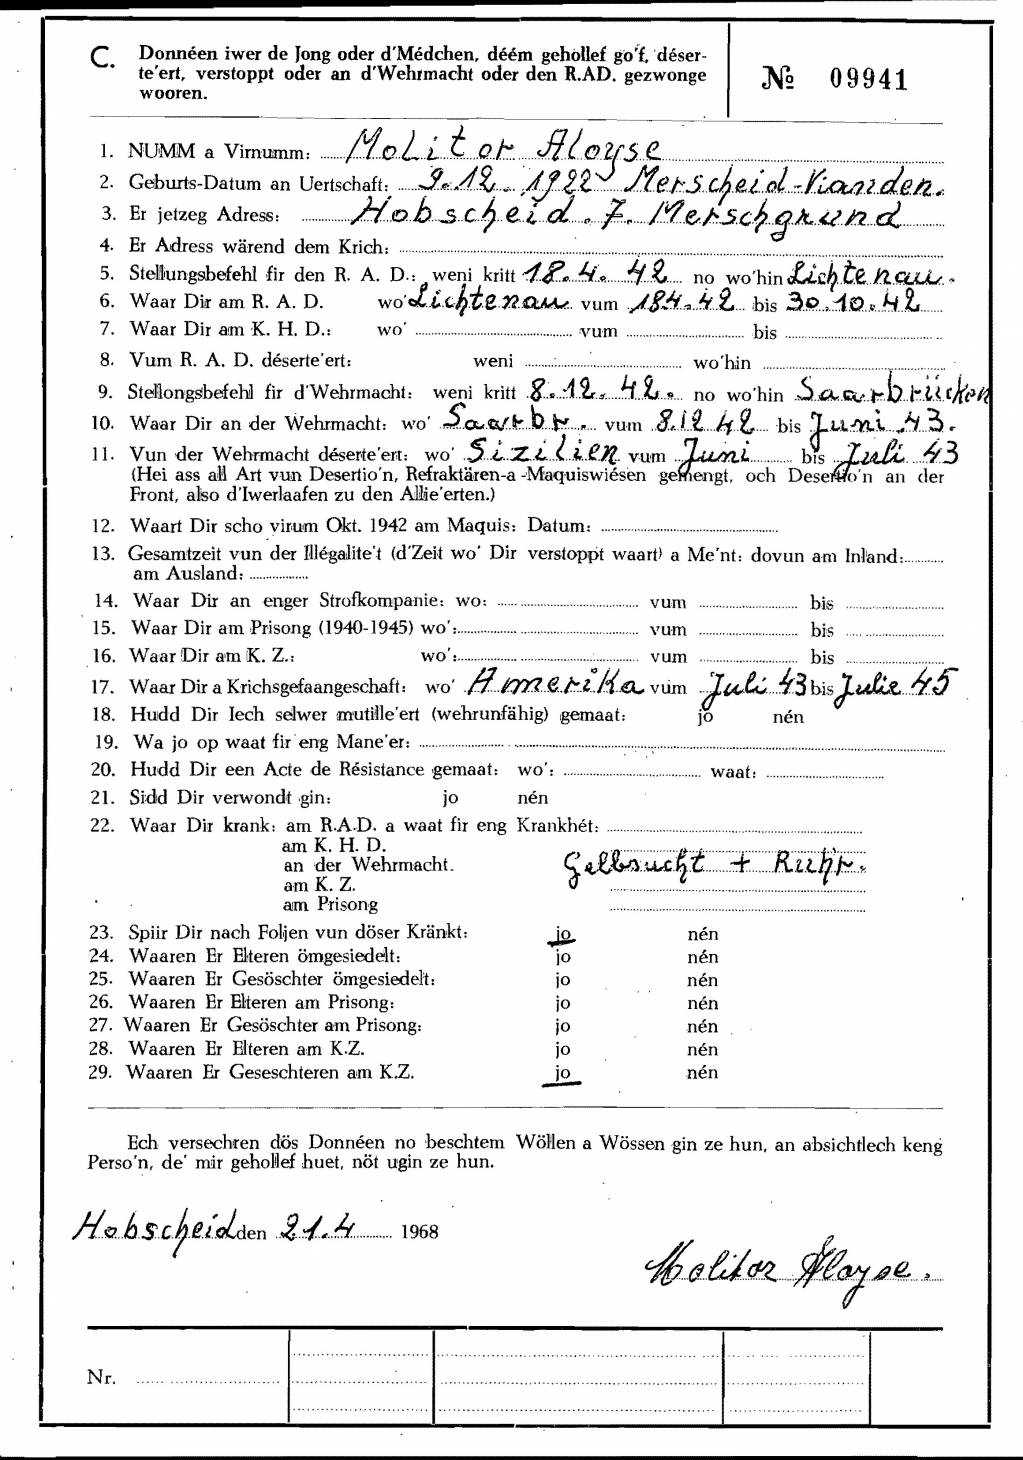 C. Donnéen iwer de Jong oder d'Médchen, déém gehollef go'f, déser-
te'ert, verstoppt oder an d'Wehrmacht oder den R.AD. gezwonge
wooren.
№ 09941
1. NUMM a Virnumm: Molitor Aloyse
2. Geburts-Datum an Uertschaft: 9.12.1922 Merscheid-Vianden.
3. Er jetzeg Adress: Hobscheid. 7. Merschgrund
4. Er Adress wärend dem Krich:
5. Stellungsbefehl fir den R. A. D.: weni kritt 18.4.42 no wo'hin Lichtenau.
6. Waar Dir am R. A. D. wo' Lichtenau vum 18.4.42 bis 30.10.42
7. Waar Dir am K. H. D.: wo' vum bis
8. Vum R. A. D. déserte'ert: weni wo'hin
9. Stellongsbefehl fir d'Wehrmacht: weni kritt 8.12.42. no wo'hin Saarbrücken
10. Waar Dir an der Wehrmacht: wo' Saarbr. vum 8.12.42 bis Juni 43.
11. Vun der Wehrmacht déserte'ert: wo' Sizilien vum Juni bis Juli 43
(Hei ass all Art vun Desertio'n, Refraktären-a -Maquiswiésen gemengt, och Desertio'n an der
Front, also d'Iwerlaafen zu den Allie'erten.)
12. Waart Dir scho virum Okt. 1942 am Maquis: Datum:
13. Gesamtzeit vun der Illégalite't (d'Zeit wo' Dir verstoppt waart) a Me'nt: dovun am Inland:
am Ausland:
14. Waar Dir an enger Strofkompanie: wo: vum bis
15. Waar Dir am Prisong (1940-1945) wo': vum bis
16. Waar Dir am K. Z.: wo': vum bis
17. Waar Dir a Krichsgefaangeschaft: wo' Amerika vum Juli 43 bis Julie 45
18. Hudd Dir Iech selwer mutille'ert (wehrunfähig) gemaat: jo nén
19. Wa jo op waat fir eng Mane'er:
20. Hudd Dir een Acte de Résistance gemaat: wo': waat:
21. Sidd Dir verwondt gin: jo nén
22. Waar Dir krank: am R.A.D. a waat fir eng Krankhét:
am K. H. D.
an der Wehrmacht. Gelbsucht + Ruhr.
am K. Z.
am Prisong
23. Spiir Dir nach Foljen vun döser Kränkt: jo nén
24. Waaren Er Elteren ömgesiedelt: jo nén
25. Waaren Er Gesöschter ömgesiedelt: jo nén
26. Waaren Er Elteren am Prisong: jo nén
27. Waaren Er Gesöschter am Prisong: jo nén
28. Waaren Er Elteren am K.Z. jo nén
29. Waaren Er Geseschteren am K.Z. jo nén
Ech versechren dös Donnéen no beschtem Wöllen a Wössen gin ze hun, an absichtlech keng
Perso'n, de' mir gehollef huet, nöt ugin ze hun.
Hobscheid den 21.4 1968
Molitor Aloyse.
Nr.